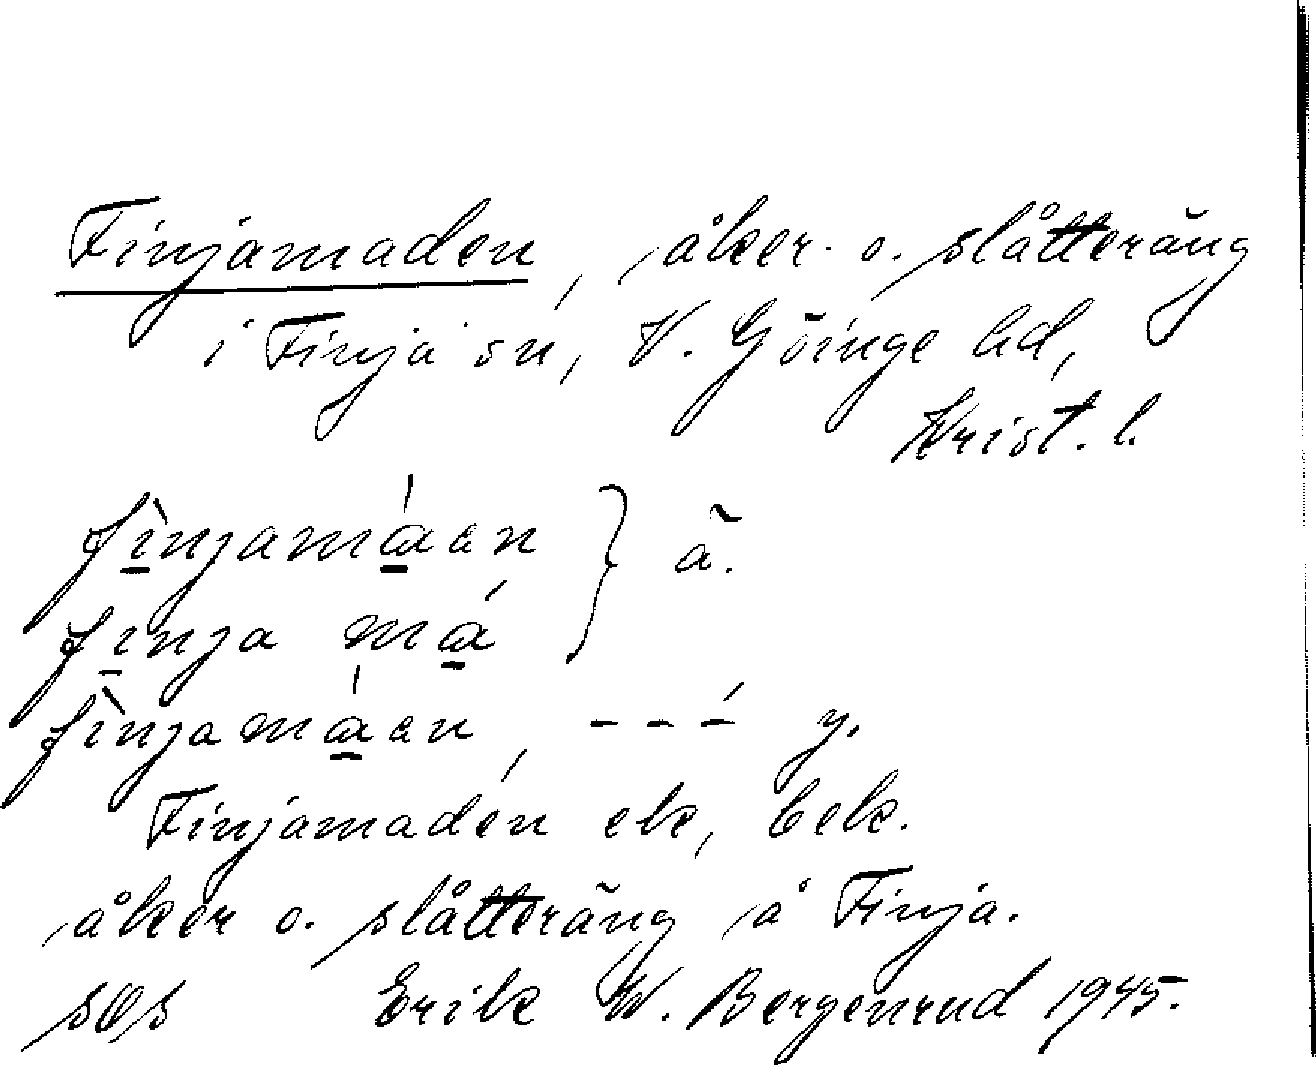 Finjamaden, åker- o. slåtteräng
i Finja sn, V. Göinge hd,
Krist. l.
fìnjamáan } ä.
finja má
fìnjamáan, – – –́ y.
Finjamaden ek, bek.
åker o. slåtteräng å Finja.
sOs Erik W. Bergenrud 1945.